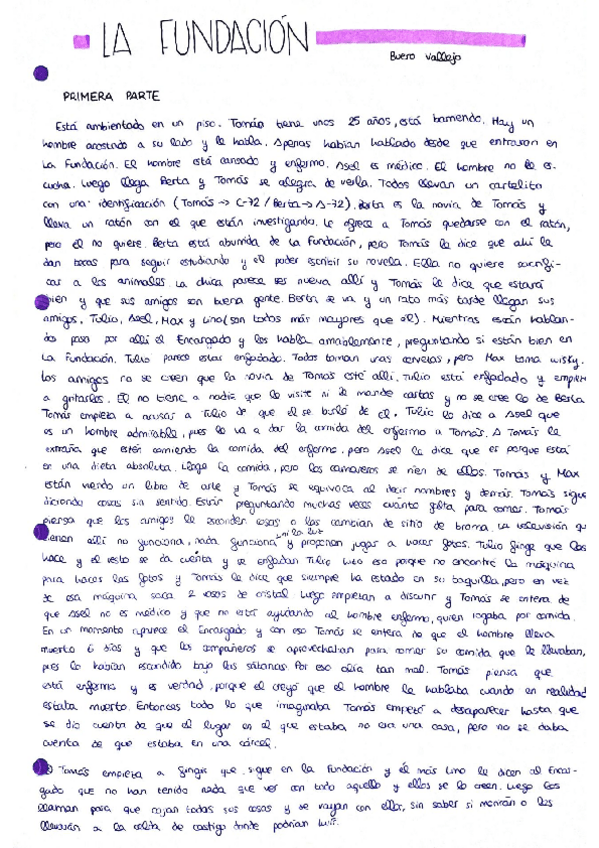 LA FUNDACIÓN
Buero Vallejo
PRIMERA PARTE
Está ambientado en un piso. Tomás tiene unos 25 años, está barriendo. Hay un
hombre acostado a su lado y le habla. Apenas habían hablado desde que entraron en
La Fundación. El hombre está cansado y enfermo. Asel es médico. El hombre no le es-
cucha. Luego llega Berta y Tomás se alegra de verla. Todos llevan un cartelito
con una identificación (Tomás → C-72 / Berta → A-72). Berta es la novia de Tomás y
lleva un ratón con el que están investigando. Le ofrece a Tomás quedarse con el ratón,
pero él no quiere. Berta está aburrida de La Fundación, pero Tomás la dice que ahí le
dan becas para seguir estudiando y el poder escribir su novela. Ella no quiere sacrifi-
car a los animales. La chica parece ser nueva allí y Tomás le dice que estará
bien y que sus amigos son buena gente. Berta se va y un rato más tarde llegan sus
amigos, Tulio, Asel, Max y Lino (son todos más mayores que él). Mientras están hablan-
do pasa por allí el Encargado y les habla amablemente, preguntando si están bien en
La Fundación. Tulio parece estar enfadado. Todos toman unas cervezas, pero Max toma wisky.
Los amigos no se creen que la novia de Tomás esté allí. Tulio está enfadado y empieza
a gritarles. Él no tiene a nadie que lo visite ni le mande cartas y no se cree lo de Berta
Tomás empieza a acusar a Tulio de que él se burló de él. Tulio le dice a Asel que
es un hombre admirable, pues le va a dar la comida del enfermo a Tomás. A Tomás le
extraña que estén comiendo la comida del enfermo, pero Asel le dice que es porque está
en una dieta absoluta. Llega la comida, pero los camareros se ríen de ellos. Tomás y Max
están viendo un libro de arte y Tomás se equivoca al decir nombres y demás. Tomás sigue
diciendo cosas sin sentido. Están preguntando muchas veces cuánto falta para comer. Tomás
piensa que los amigos le esconden cosas o las cambian de sitio de broma. La televisión que
tienen allí no funciona, nada funciona ni la luz y proponen jugar a hacer fotos. Tulio finge que las
hace y el resto se da cuenta y se enfadan. Tulio hizo eso porque no encontró la máquina
para hacer las fotos y Tomás le dice que siempre ha estado en su taquilla, pero en vez
de esa máquina saca 2 vasos de cristal. Luego empiezan a discutir y Tomás se entera de
que Asel no es médico y que no está ayudando al hombre enfermo, quien rogaba por comida.
En un momento aparece el Encargado y con eso Tomás se entera que el hombre lleva
muerto 6 días y que los compañeros se aprovechaban para comer su comida que le llevaban,
pues lo habían escondido bajo las sábanas. Por eso olía tan mal. Tomás piensa que
está enfermo y es verdad, porque él creyó que el hombre le hablaba cuando en realidad
estaba muerto. Entonces todo lo que imaginaba Tomás empezó a desaparecer hasta que
se dio cuenta de que el lugar en el que estaba no era una casa, pero no se daba
cuenta de que estaba en una cárcel.
Tomás empieza a fingir que sigue en la Fundación y él más Lino le dicen al Encar-
gado que no han tenido nada que ver con todo aquello y ellos se lo creen. Luego los
llaman para que cojan todas sus cosas y se vayan con ellos, sin saber si morirán o los
llevarán a la celda de castigo donde podrían huir.